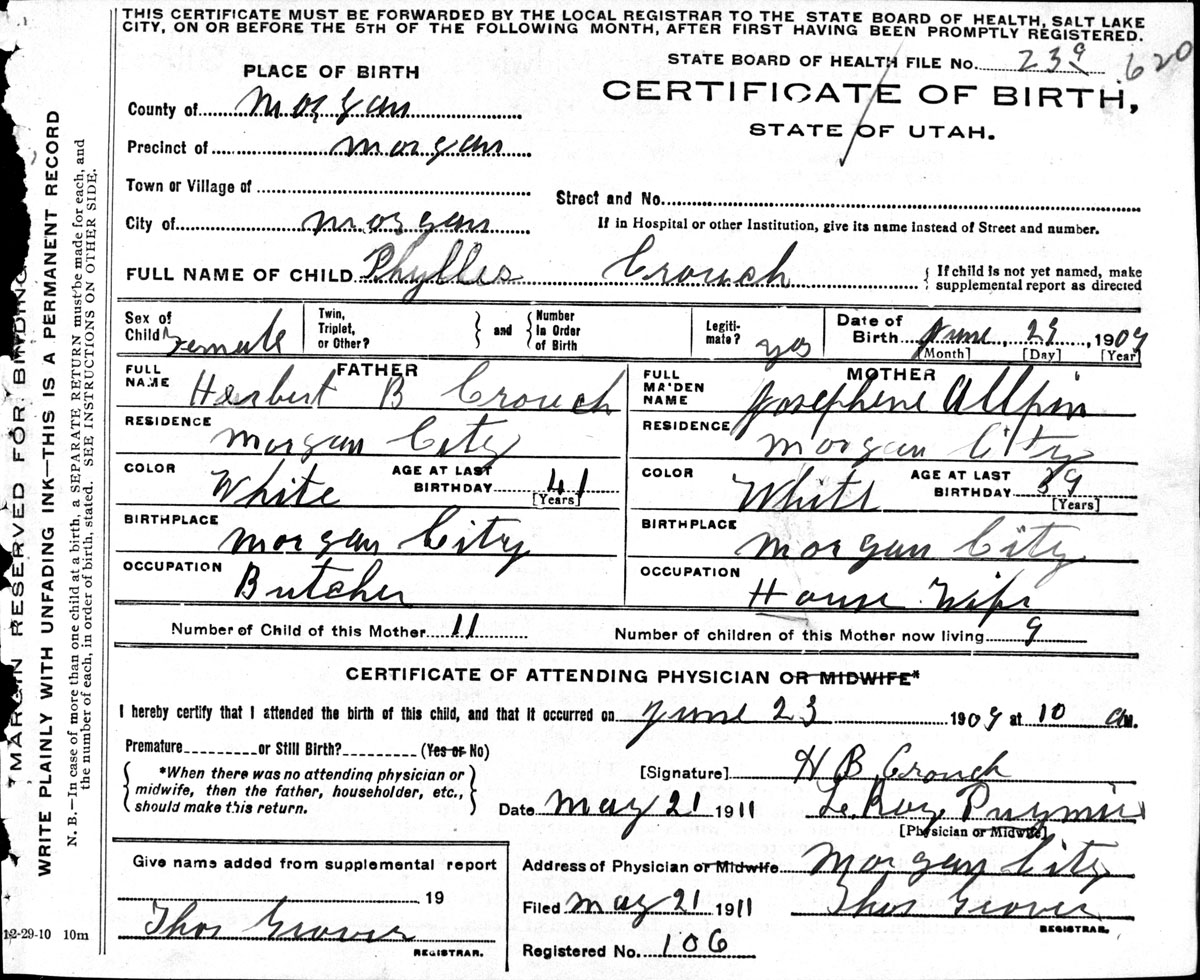 THIS CERTIFICATE MUST BE FORWARDED BY THE LOCAL REGISTRAR TO THE STATE BOARD OF HEALTH, SALT LAKE
CITY, ON OR BEFORE THE 5TH OF THE FOLLOWING MONTH, AFTER FIRST HAVING BEEN PROMPTLY REGISTERED.
STATE BOARD OF HEALTH FILE No. 239 620
PLACE OF BIRTH
CERTIFICATE OF BIRTH,
STATE OF UTAH.
County of Morgan
Precinct of Morgan
Town or Village of
Street and No.
City of Morgan
If in Hospital or other Institution, give its name instead of Street and number.
FULL NAME OF CHILD Phyllis Crouch
If child is not yet named, make
supplemental report as directed
Sex of
Child Female
Twin,
Triplet,
or Other?
and
Number
in Order
of Birth
Legiti-
mate? yes
Date of
Birth June, 23, 1909
[Month] [Day] [Year]
FATHER
FULL
NAME Herbert B Crouch
RESIDENCE Morgan City
COLOR White
AGE AT LAST
BIRTHDAY 41
[Years]
BIRTHPLACE Morgan City
OCCUPATION Butcher
MOTHER
FULL
MAIDEN
NAME Josephene Allpin
RESIDENCE Morgan City
COLOR White
AGE AT LAST
BIRTHDAY 39
[Years]
BIRTHPLACE Morgan City
OCCUPATION House Wife
Number of Child of this Mother 11
Number of children of this Mother now living 9
CERTIFICATE OF ATTENDING PHYSICIAN OR MIDWIFE*
I hereby certify that I attended the birth of this child, and that it occurred on June 23 1909 at 10 am.
Premature or Still Birth? (Yes or No)
*When there was no attending physician or
midwife, then the father, householder, etc.,
should make this return.
[Signature] H B Crouch
Date May 21 1911 LeRoy
[Physician or Midwife]
Address of Physician or Midwife Morgan City
Filed May 21 1911 Thos Grover
REGISTRAR.
Registered No. 106
Give name added from supplemental report
19
Thos Grover
REGISTRAR.
12-29-10 10m
MARGIN RESERVED FOR BINDING
WRITE PLAINLY WITH UNFADING INK—THIS IS A PERMANENT RECORD
N. B.—In case of more than one child at a birth, a SEPARATE RETURN must be made for each, and
the number of each, in order of birth, stated. SEE INSTRUCTIONS ON OTHER SIDE.